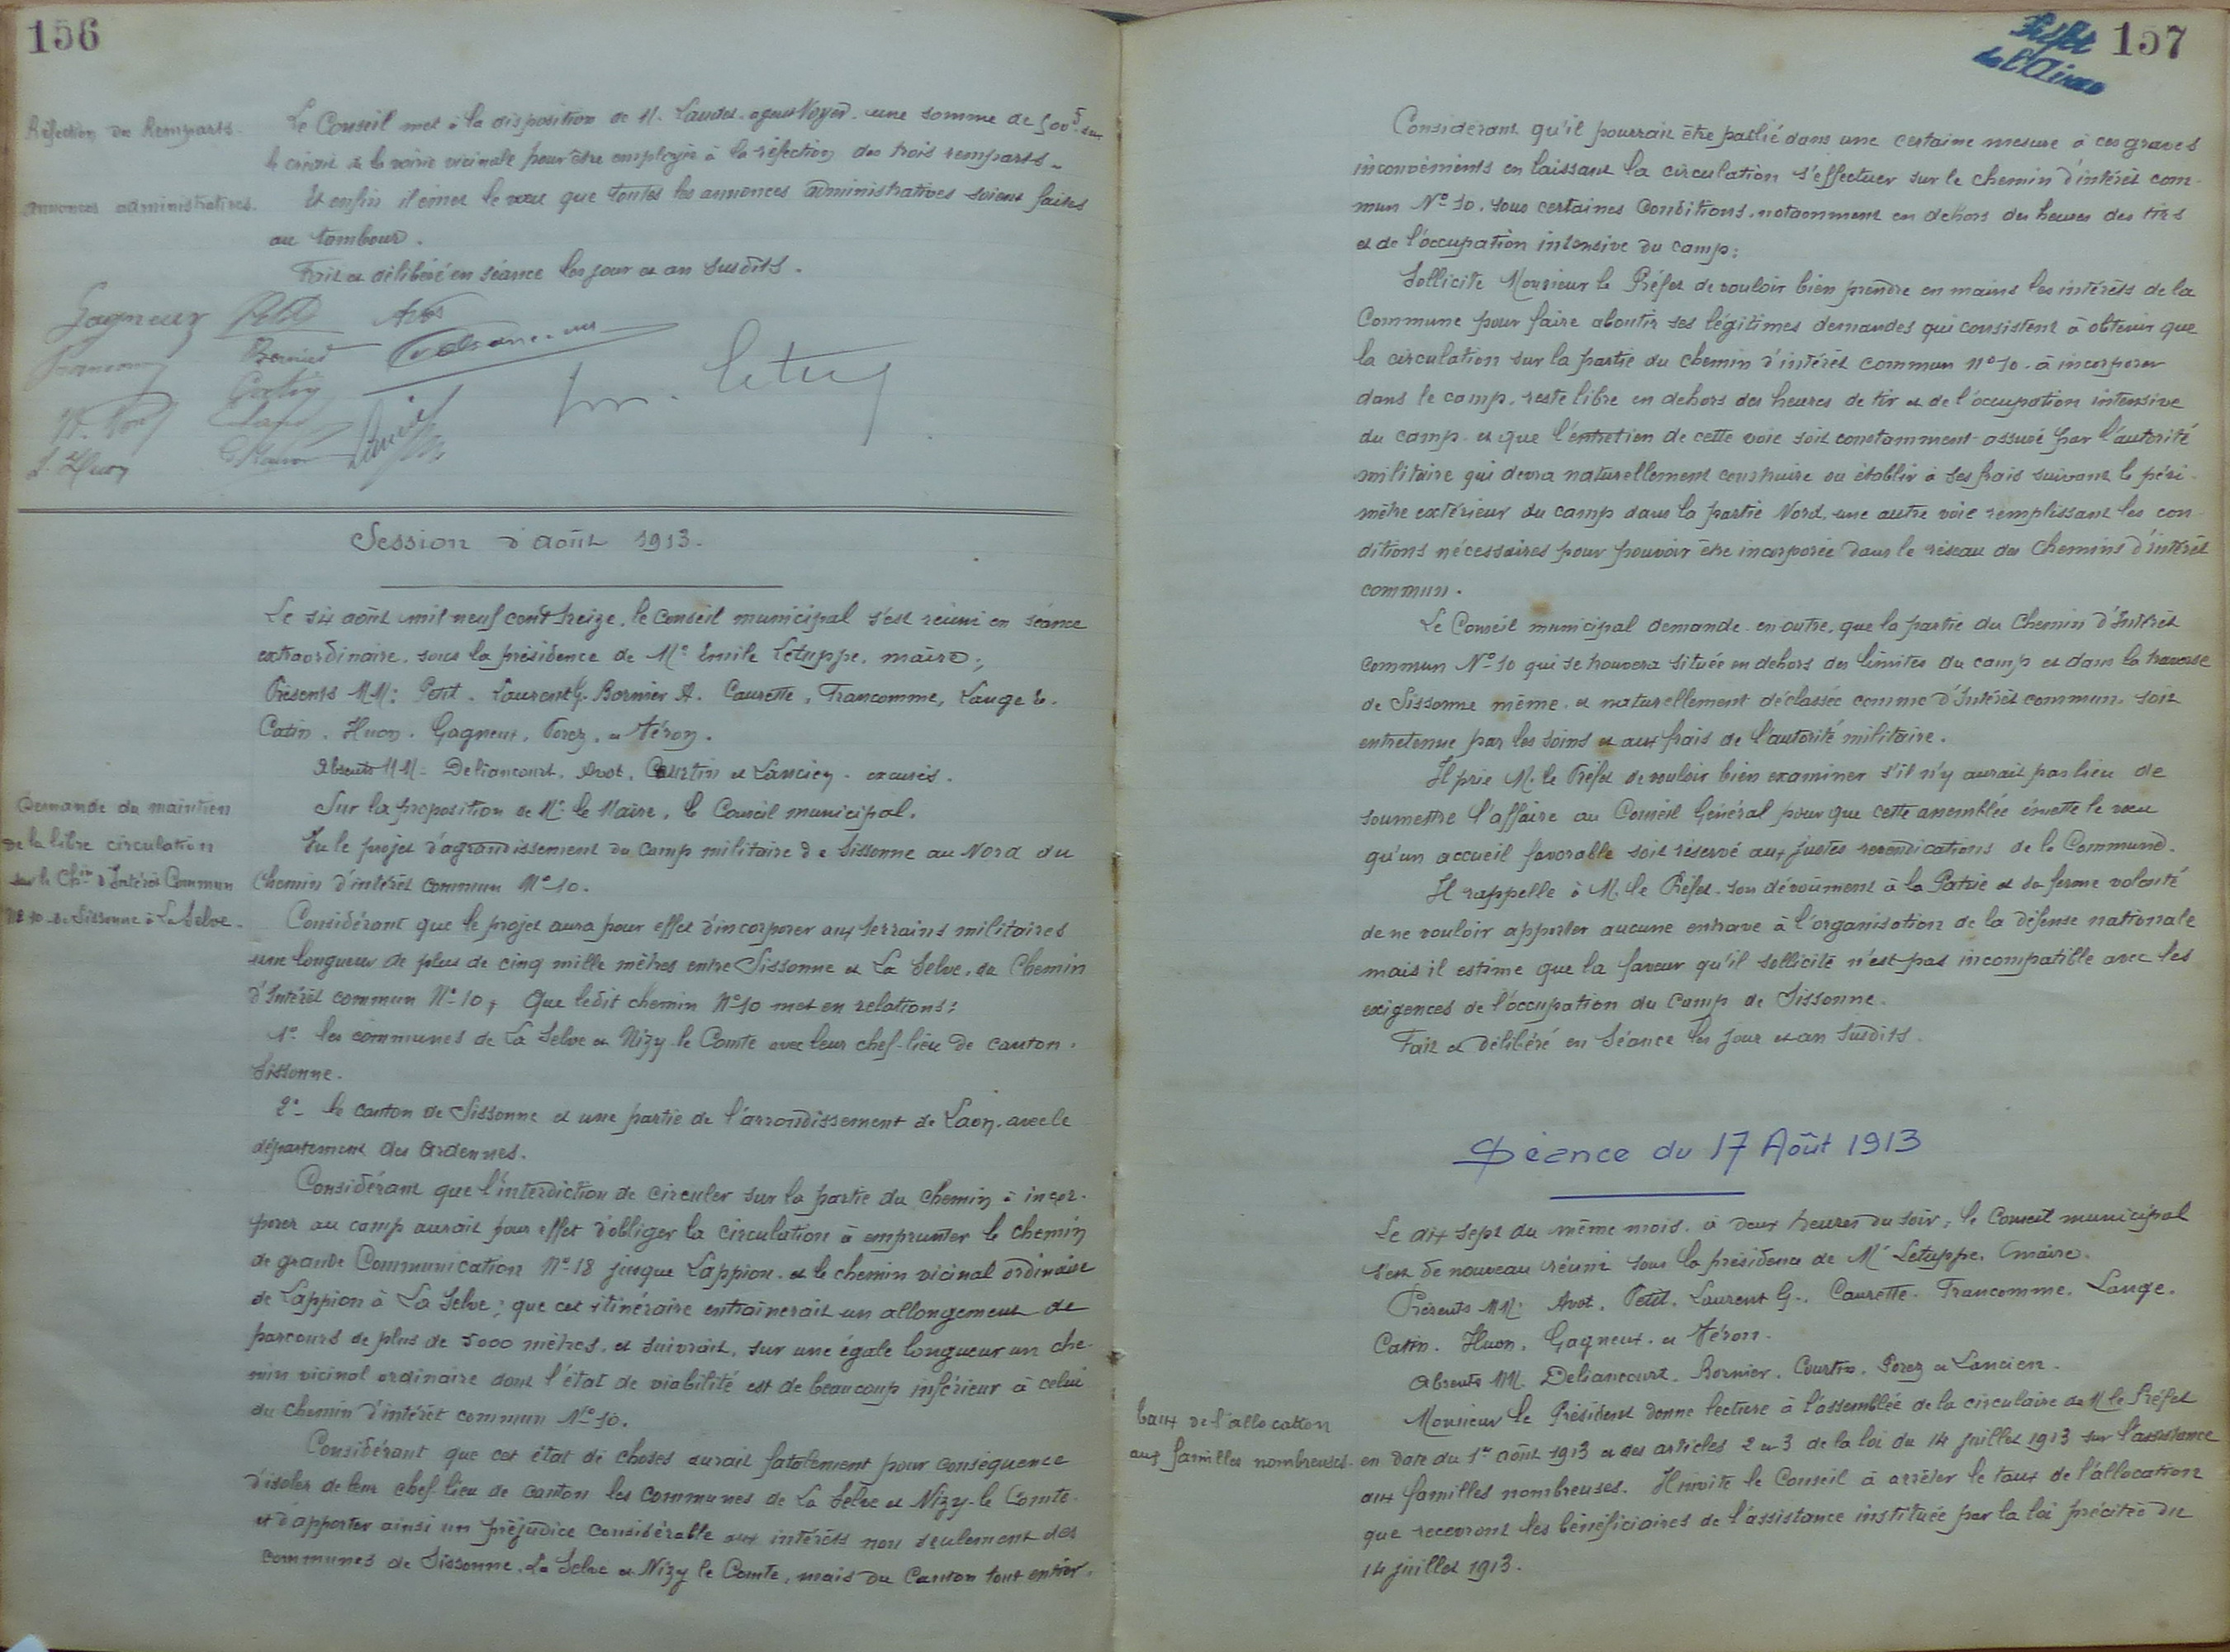 156
Réfection des Remparts.
Le Conseil met à la disposition de M. agent Voyer. une somme de 500f. sur
le crédit de la voirie vicinale pour être employée à la réfection des trois remparts.
annonces administratives.
Et enfin il émet le vœu que toutes les annonces administratives soient faites
au tambour.
Fait et délibéré en séance les jour et an susdits.
Gagneux Petit Avot
Francomme Bornier
Catin
L. Huon
Session d'août 1913.
Le six août mil neuf cent treize, le Conseil municipal s'est réuni en séance
extraordinaire, sous la présidence de Mr Emile Letuppe, maire;
Présents MM: Petit. Laurent G. Bornier A. Caurette, Francomme, Lauge E.
Catin. Huon. Gagneux. Porez. et Féron.
Absents MM: Deliancourt, Avot, Courtin et Lancien. excusés.
Demande du maintien
de la libre circulation
sur le Chin d'Intérêt Commun
No 10 de Sissonne à La Selve.
Sur la proposition de Mr le Maire, le Conseil municipal.
Vu le projet d'agrandissement du Camp militaire de Sissonne au Nord du
Chemin d'intérêt commun No 10.
Considérant que le projet aura pour effet d'incorporer aux terrains militaires
une longueur de plus de cinq mille mètres entre Sissonne et La Selve, du Chemin
d'Intérêt commun No 10, Que ledit chemin No 10 met en relations:
1o les communes de La Selve et Nizy-le-Comte avec leur chef-lieu de canton.
Sissonne.
2o le canton de Sissonne et une partie de l'arrondissement de Laon. avec le
département des Ardennes.
Considérant que l'interdiction de circuler sur la partie du chemin à incor-
porer au camp aurait pour effet d'obliger la circulation à emprunter le chemin
de grande Communication No 18 jusque Lappion. et le chemin vicinal ordinaire
de Lappion à La Selve; que cet itinéraire entraînerait un allongement de
parcours de plus de 5000 mètres, et suivrait, sur une égale longueur un che-
min vicinal ordinaire dont l'état de viabilité est de beaucoup inférieur à celui
du chemin d'intérêt commun No 10.
Considérant que cet état de choses aurait fatalement pour conséquence
d'isoler de leur chef-lieu de canton les communes de La Selve et Nizy-le-Comte.
et d'apporter ainsi un préjudice considérable aux intérêts non seulement des
communes de Sissonne. La Selve et Nizy le Comte, mais du Canton tout entier.
157
Préfet
de l'Aisne
Considérant qu'il pourrait être pallié dans une certaine mesure à ces graves
inconvénients en laissant la circulation s'effectuer sur le chemin d'intérêt com-
mun No 10. sous certaines Conditions. notamment en dehors des heures des tirs
et de l'occupation intensive du camp:
Sollicite Monsieur le Préfet de vouloir bien prendre en mains les intérêts de la
Commune pour faire aboutir ses légitimes demandes qui consistent à obtenir que
la circulation sur la partie du chemin d'intérêt commun No 10. à incorporer
dans le camp. reste libre en dehors des heures de tir et de l'occupation intensive
du camp. et que l'entretien de cette voie soit constamment assuré par l'autorité
militaire qui devra naturellement construire ou établir à ses frais suivant le péri-
mètre extérieur du camp dans la partie Nord, une autre voie remplissant les con-
ditions nécessaires pour pouvoir être incorporée dans le réseau des Chemins d'intérêt
commun.
Le Conseil municipal demande en outre, que la partie du Chemin d'Intérêt
commun No 10 qui se trouvera située en dehors des limites du camp et dans la traverse
de Sissonne même. et naturellement déclassée comme d'Intérêt commun. soit
entretenue par les soins et aux frais de l'autorité militaire.
Il prie M. le Préfet de vouloir bien examiner s'il n'y aurait pas lieu de
soumettre l'affaire au Conseil Général pour que cette assemblée émette le vœu
qu'un accueil favorable soit réservé aux justes revendications de la Commune.
Il rappelle à M. le Préfet son dévoûment à la Patrie et sa ferme volonté
de ne vouloir apporter aucune entrave à l'organisation de la défense nationale
mais il estime que la faveur qu'il sollicite n'est pas incompatible avec les
exigences de l'occupation du Camp de Sissonne.
Fait et délibéré en Séance les jour et an susdits.
Séance du 17 Août 1913
Le dix sept du même mois. à deux heures du soir, le Conseil municipal
s'est de nouveau réuni sous la présidence de Mr Letuppe. maire.
Présents MM: Avot. Petit. Laurent G. Caurette. Francomme. Lauge.
Catin. Huon. Gagneux. et Féron.
Absents MM. Deliancourt. Bornier. Courtin. Porez et Lancien.
Taux de l'allocation
aux familles nombreuses.
Monsieur le Président donne lecture à l'assemblée de la circulaire de M. le Préfet
en date du 1er août 1913 et des articles 2 et 3 de la loi du 14 juillet 1913 sur l'assistance
aux familles nombreuses. Il invite le Conseil à arrêter le taux de l'allocation
que recevront les bénéficiaires de l'assistance instituée par la loi précitée du
14 juillet 1913.